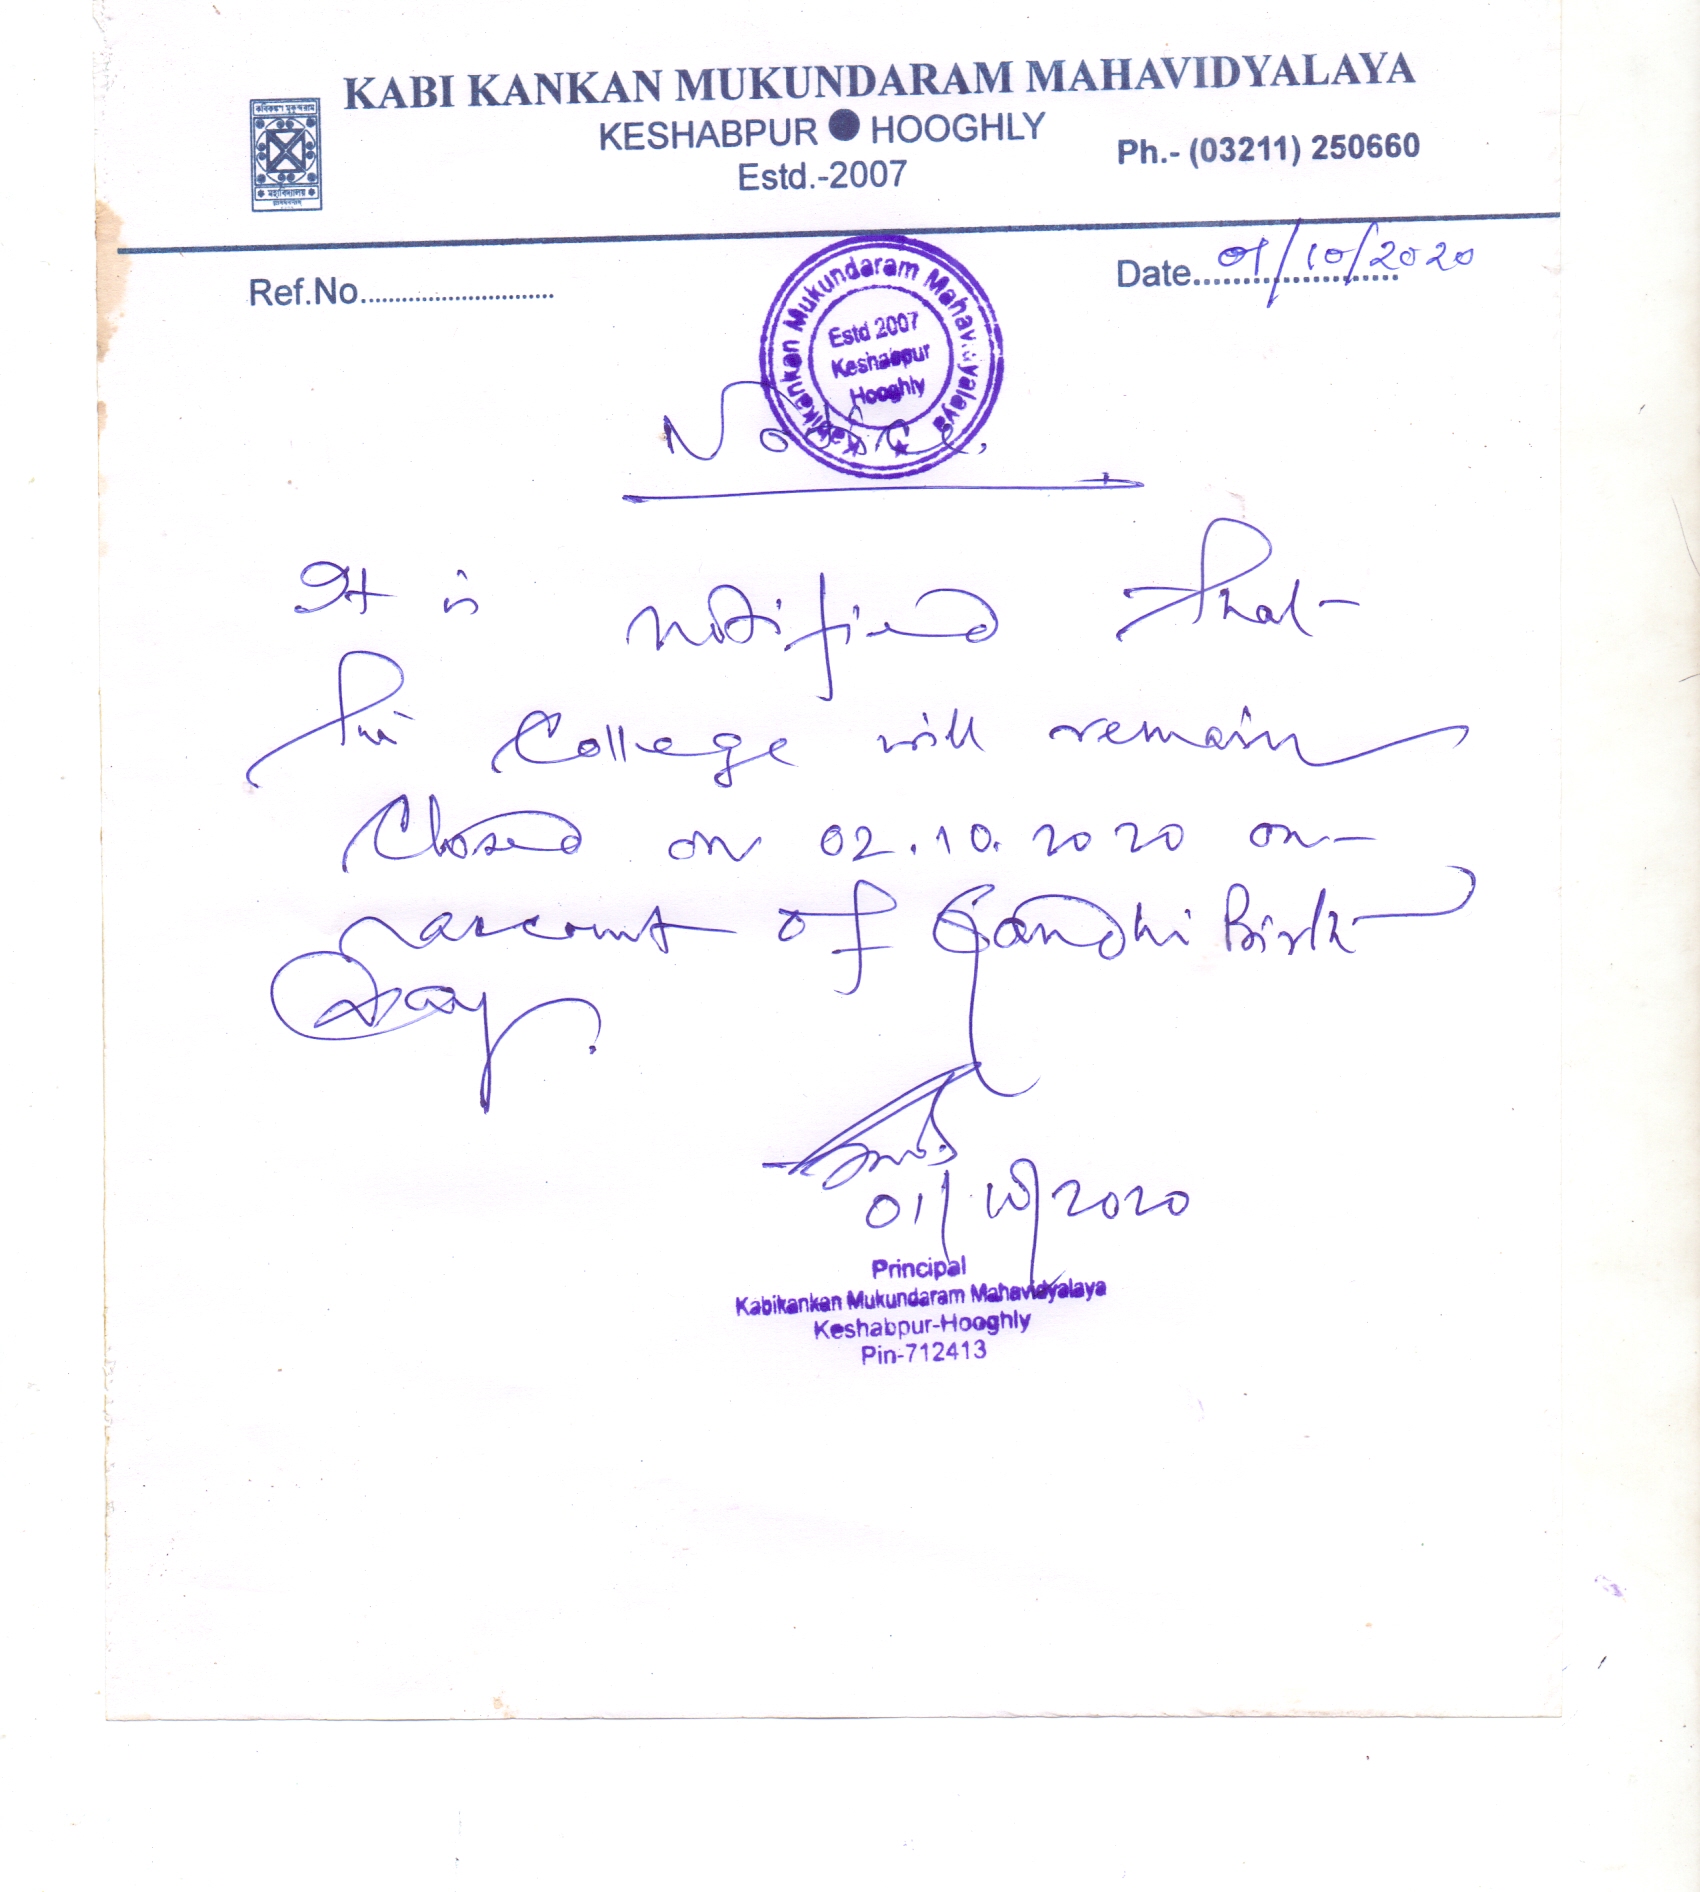 KABI KANKAN MUKUNDARAM MAHAVIDYALAYA
KESHABPUR ● HOOGHLY
Ph.- (03211) 250660
Estd.-2007
কবিকঙ্কণ মুকুন্দরাম
মহাবিদ্যালয়
Ref.No............................
Date........................ 01/10/2020
Kabikankan Mukundaram Mahavidyalaya
Estd 2007
Keshabpur
Hooghly
Notice.
It is notified that
the College will remain
Closed on 02.10.2020 on
account of Gandhi Birth
Day.
01/10/2020
Principal
Kabikankan Mukundaram Mahavidyalaya
Keshabpur-Hooghly
Pin-712413